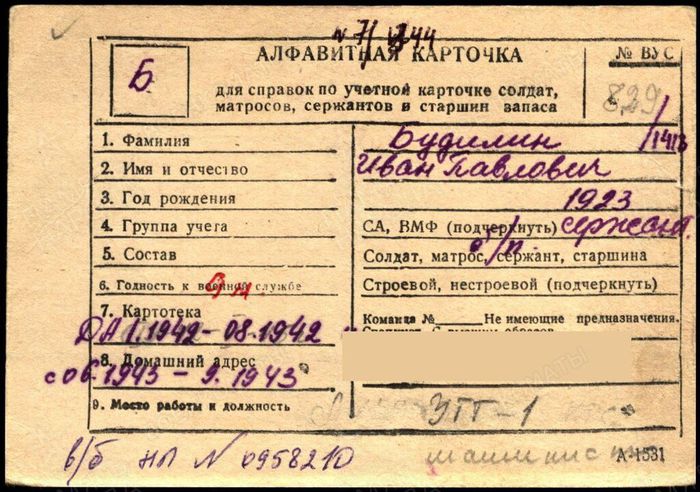 № 7/ 44
АЛФАВИТНАЯ КАРТОЧКА
№ ВУС
Б
для справок по учетной карточке солдат,
матросов, сержантов и старшин запаса
829/
1413
1. Фамилия
Будилин
2. Имя и отчество
Иван Павлович
3. Год рождения
1923
4. Группа учета
СА, ВМФ (подчеркнуть) сержант
5. Состав
Солдат, матрос, сержант, старшина
б/п.
6. Годность к военной службе
Строевой, нестроевой (подчеркнуть)
7. Картотека
Команда № Не имеющие предназначения.
ДА 1.1942 - 08.1942
8. Домашний адрес
с 06.1943 - 9.1943
9. Место работы и должность
УТТ-1
в/б НП № 0958210
машинист
А-1531